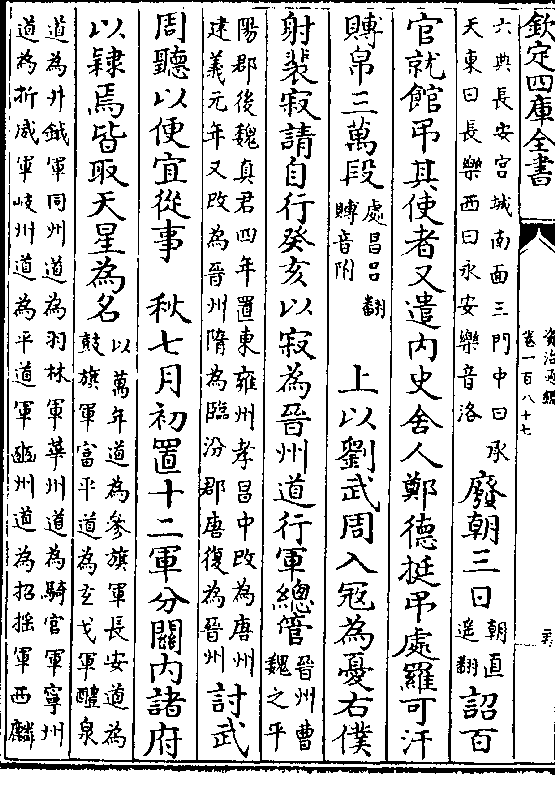 欽定四庫全書
資治通鑑
卷一百八十七
六典長安宮城南面三門中曰承
天東曰長樂西曰永安樂音洛
廢朝三日
朝直
遥翻
詔百
官就館弔其使者又遣内史舍人鄭德挺弔處羅可汗
賻帛三萬段
處昌呂翻
賻音附
上以劉武周入寇為憂右僕
射裴寂請自行癸亥以寂為晉州道行軍總管
晉州曹
魏之平
陽郡後魏真君四年置東雍州孝昌中改為唐州
建義元年又改為晉州隋為臨汾郡唐復為晉州
討武
周聽以便宜從事
秋七月初置十二軍分關内諸府
以隸焉皆取天星為名
以萬年道為參旗軍長安道為
鼓旗軍富平道為玄戈軍醴泉
道為井鉞軍同州道為羽林軍華州道為騎官軍寧州
道為折威軍岐州道為平道軍豳州道為招摇軍西麟